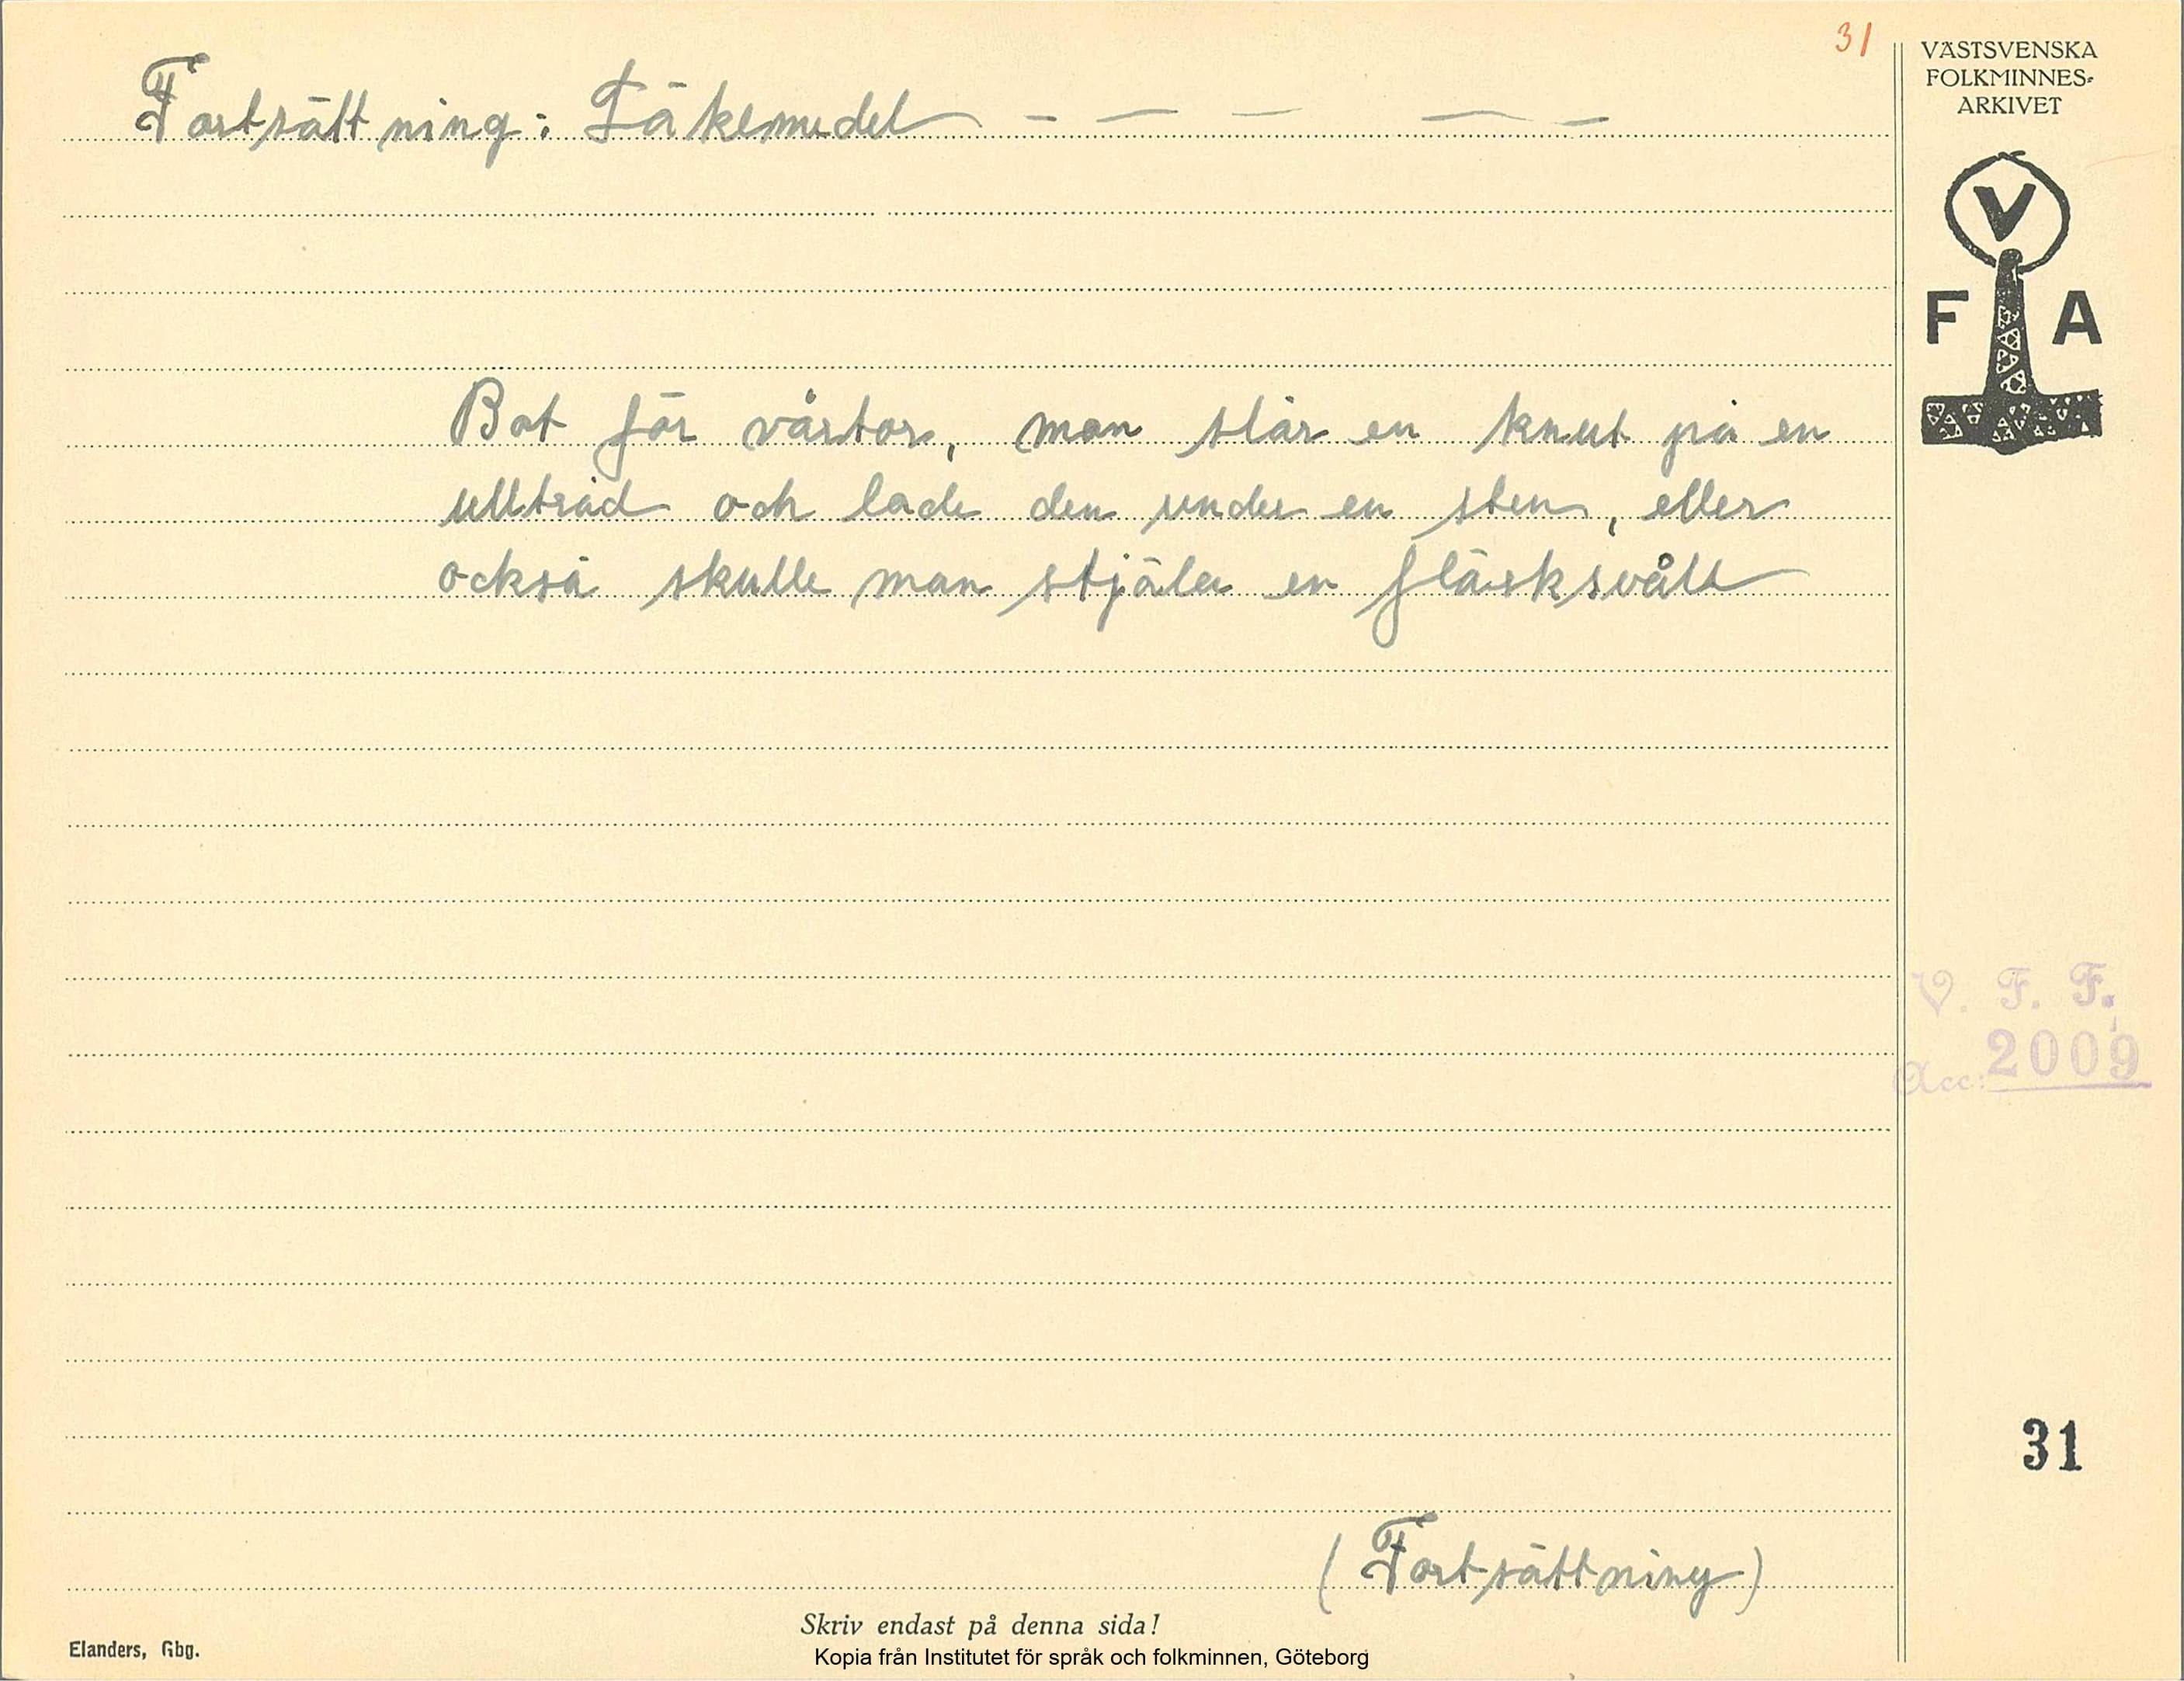 31
Fortsättning: Läkemedel — — — — —
Bot för vårtor, man slår en knut på en
ulltråd och lade den under en sten, eller
också skulle man stjäla en fläsksvåll
(Fortsättning)
Skriv endast på denna sida!
Elanders, Gbg.
Kopia från Institutet för språk och folkminnen, Göteborg
VÄSTSVENSKA
FOLKMINNES-
ARKIVET
V
F A
V. F. F.
Acc: 2009
31